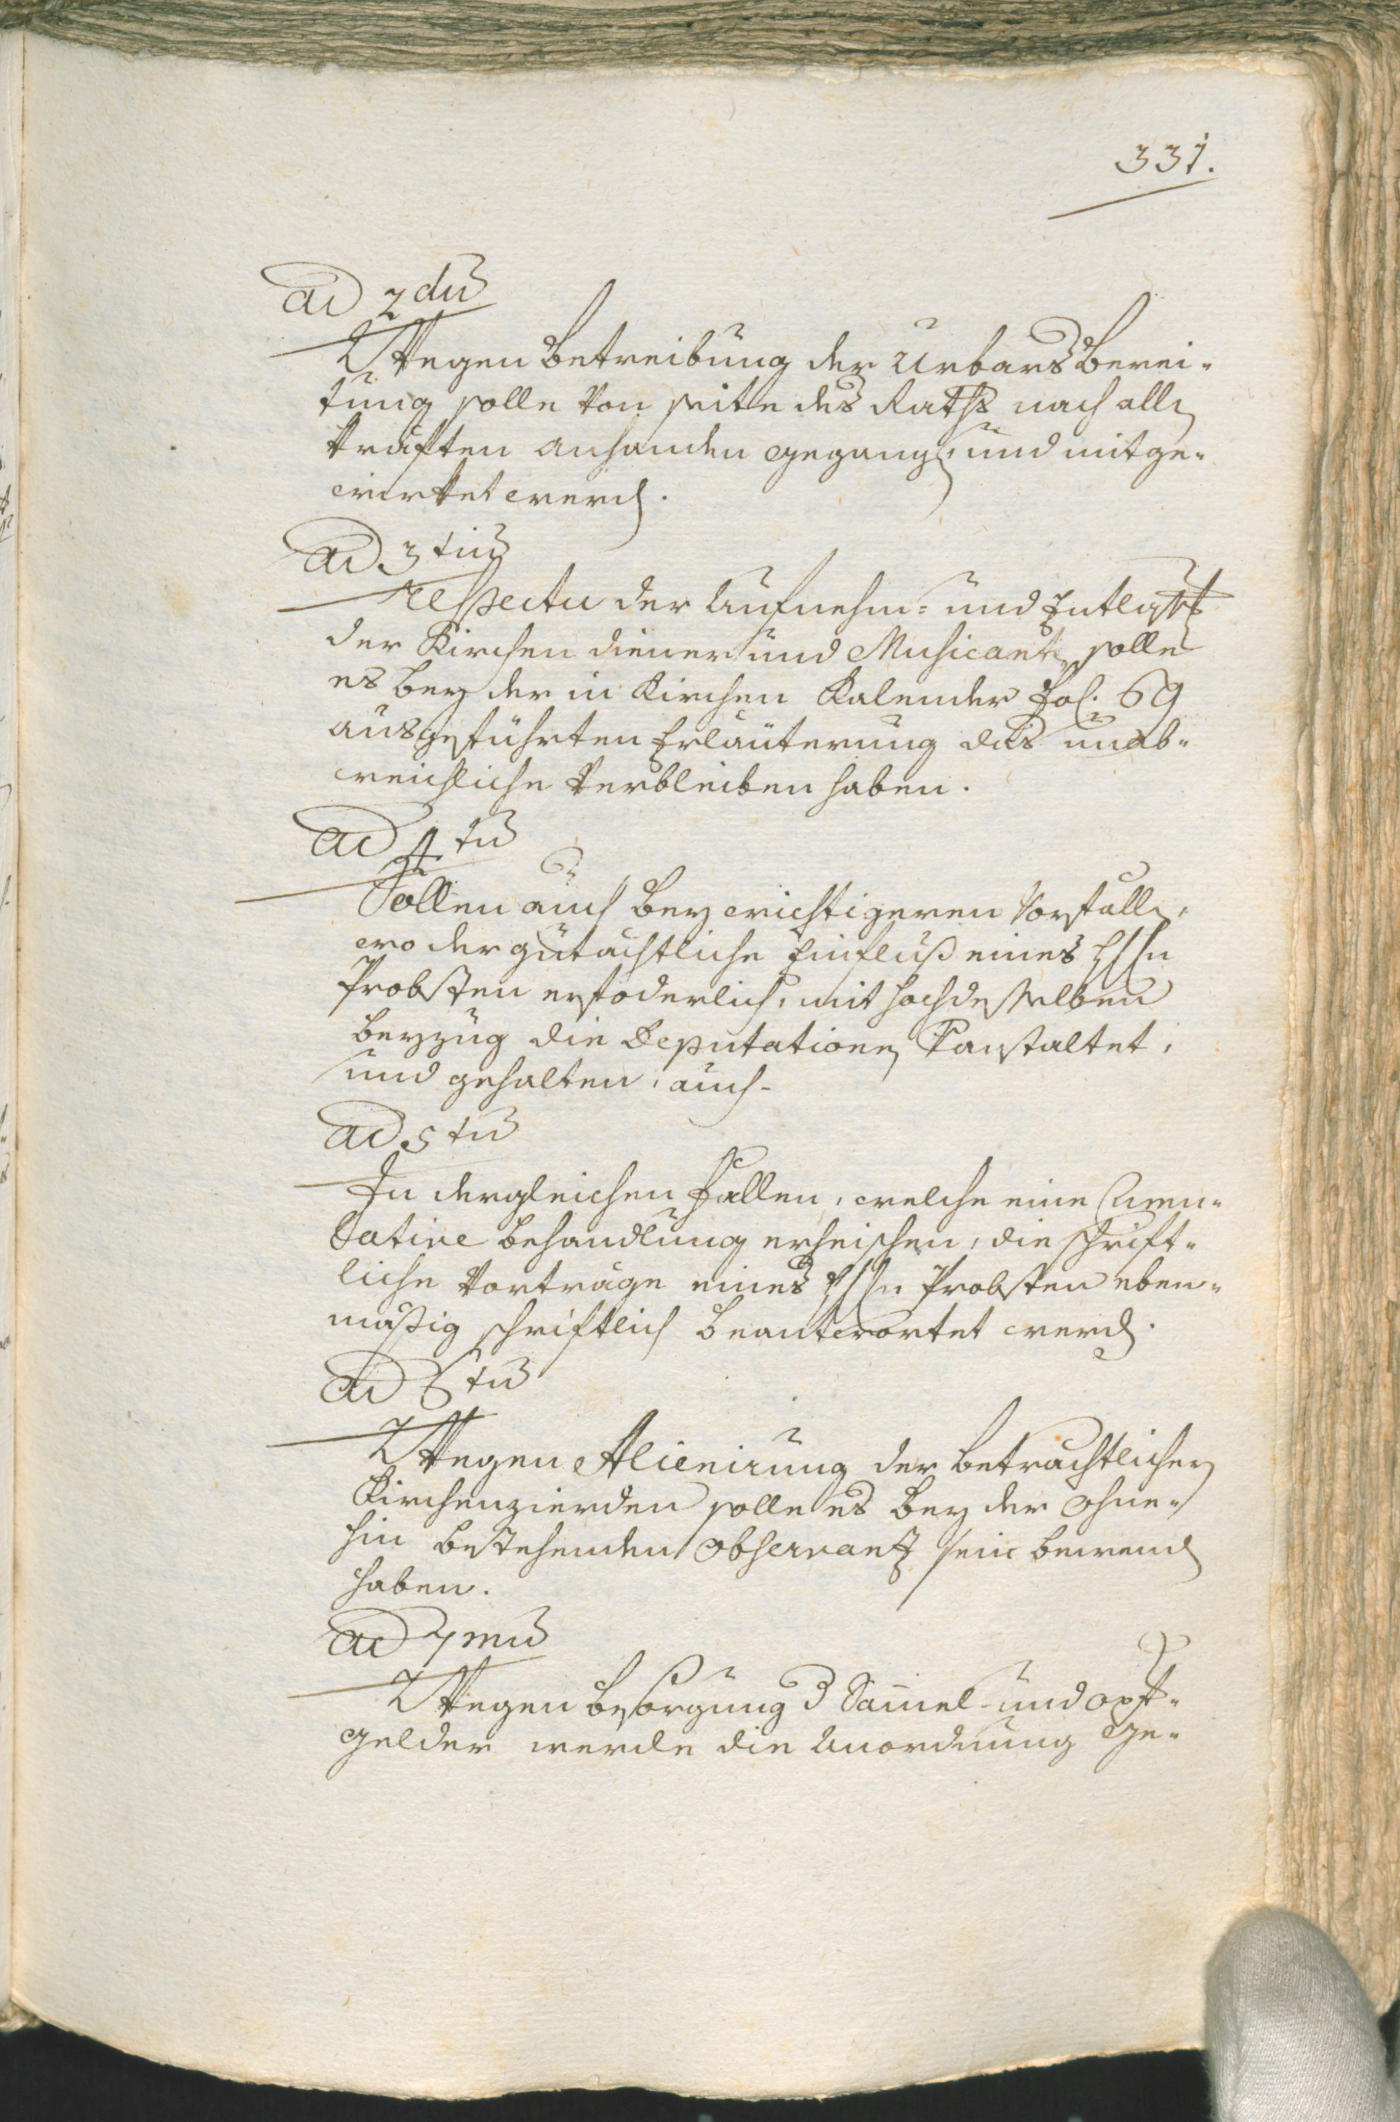 331.
ad 2dū
Wegen betreibung der Urbars berei-
tung solle von seite des Raths nach alln
kräften anhanden gegangn, und mitge-
wirket werdn.
ad 3tiū
respectu der Aufnehm- und Entlaß
der Kirchen diener und Musicantn solle
es bey der in Kirchen Kalender Fol. 69
ausgeführten Erläuterung das unab-
weichliche verbleiben haben.
ad 4tū
Sollen auch bey wichtigeren Vorfälln,
wo der gutächtliche Einfluß eines Hhn
Probsten erfoderlich, mit hochdesselben
beyzug die Deputationen veranstaltet,
und gehalten, auch-
ad 5tū
In dergleichen Fällen, welche eine Cumu-
lative behandlung erheischen, die schrift-
liche vorträge eines Hhn Probsten eben-
mäßig schriftlich beantwortet werdn.
ad 6tū
Wegen Alienirung der beträchtlichen
Kirchenzierden solle es bey der ohne-
hin bestehenden observantz sein bewendn
haben.
ad 7mū
Wegen besorgung d Sam̄el- und opfer-
gelder werde die Anordnung ge-